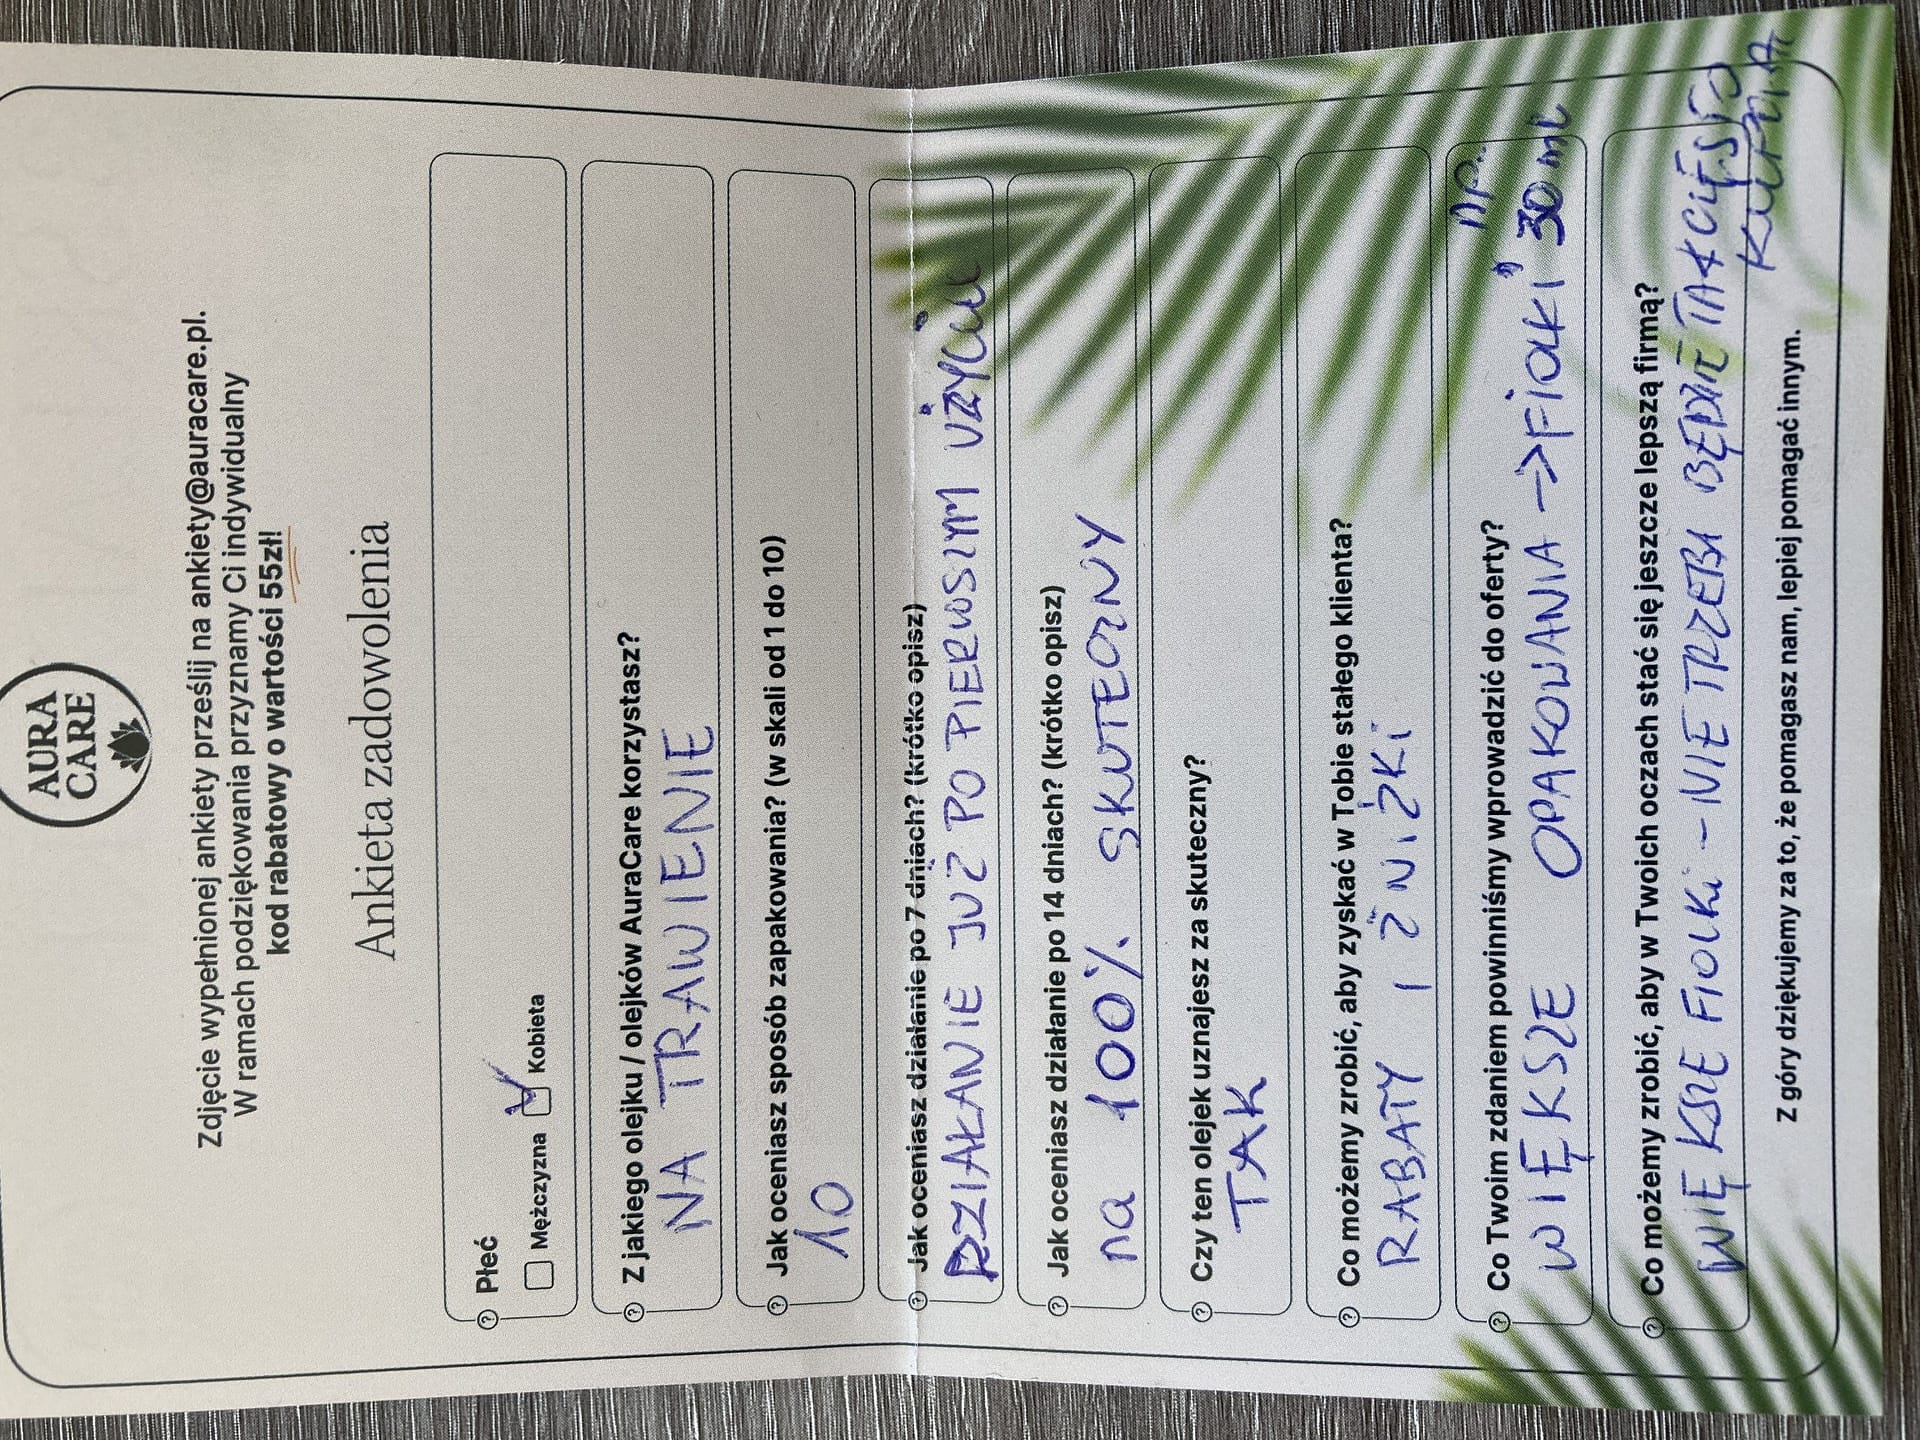 AURA
CARE
Zdjęcie wypełnionej ankiety prześlij na ankiety@auracare.pl.
W ramach podziękowania przyznamy Ci indywidualny
kod rabatowy o wartości 55zł!
Ankieta zadowolenia
Płeć
Mężczyzna Kobieta
Z jakiego olejku / olejków AuraCare korzystasz?
NA TRAWIENIE
Jak oceniasz sposób zapakowania? (w skali od 1 do 10)
10
Jak oceniasz działanie po 7 dniach? (krótko opisz)
DZIAŁANIE JUŻ PO PIERWSZYM UŻYCIU
Jak oceniasz działanie po 14 dniach? (krótko opisz)
na 100% SKUTECZNY
Czy ten olejek uznajesz za skuteczny?
TAK
Co możemy zrobić, aby zyskać w Tobie stałego klienta?
RABATY I ZNIŻKI
Co Twoim zdaniem powinniśmy wprowadzić do oferty?
np..
WIĘKSZE OPAKOWANIA -> FIOLKI 30 ml
Co możemy zrobić, aby w Twoich oczach stać się jeszcze lepszą firmą?
WIĘKSZE FIOLKI - NIE TRZEBA BĘDZIE TAK CIĘSTO
Z góry dziękujemy za to, że pomagasz nam, lepiej pomagać innym.